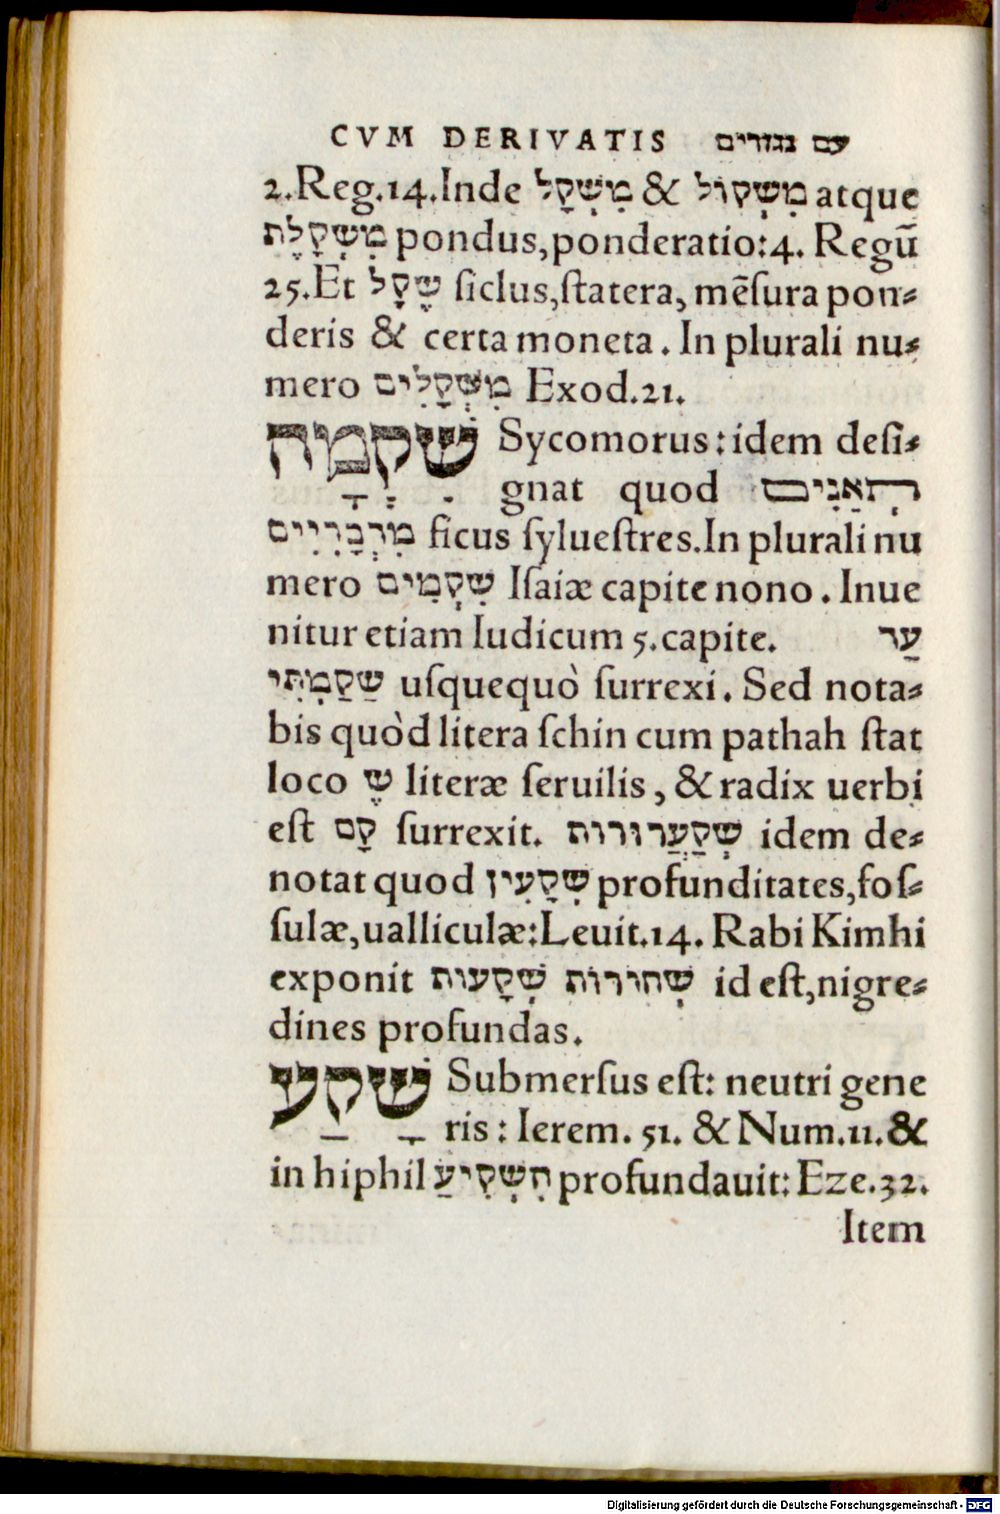 CVM DERIVATIS עם נגזרים
2.Reg.14.Inde מִשְׁקָל & מִשְׁקוֹל atque
מִשְׁקָלֶת pondus,ponderatio:4. Regū
25.Et שֶׁקֶל ſiclus,ſtatera, mēſura pon⸗
deris & certa moneta. In plurali nu⸗
mero מִשְׁקָלִים Exod.21.
שִׁקְמָה Sycomorus:idem deſi⸗
gnat quod תְּאֵנִים
מִדְבָּרִיִּים ficus ſylueſtres.In plurali nu
mero שִׁקְמִים Iſaiæ capite nono. Inue
nitur etiam Iudicum 5.capite. עַד
שַׁקַּמְתִּי uſquequò ſurrexi. Sed nota⸗
bis quòd litera ſchin cum pathah ſtat
loco שֶׁ literæ ſeruilis, & radix uerbi
eſt קָם ſurrexit. שְׁקַעֲרוּרוֹת idem de⸗
notat quod שְׁקָעִין profunditates,foſ⸗
ſulæ,ualliculæ:Leuit.14. Rabi Kimhi
exponit שְׁחוֹרוֹת שְׁקָעוֹת id eſt,nigre⸗
dines profundas.
שָׁקַע Submerſus eſt: neutri gene
ris: Ierem. 51. & Num.11.&
in hiphil הִשְׁקִיעַ profundauit: Eze.32.
Item
Digitalisierung gefördert durch die Deutsche Forschungsgemeinschaft - DFG